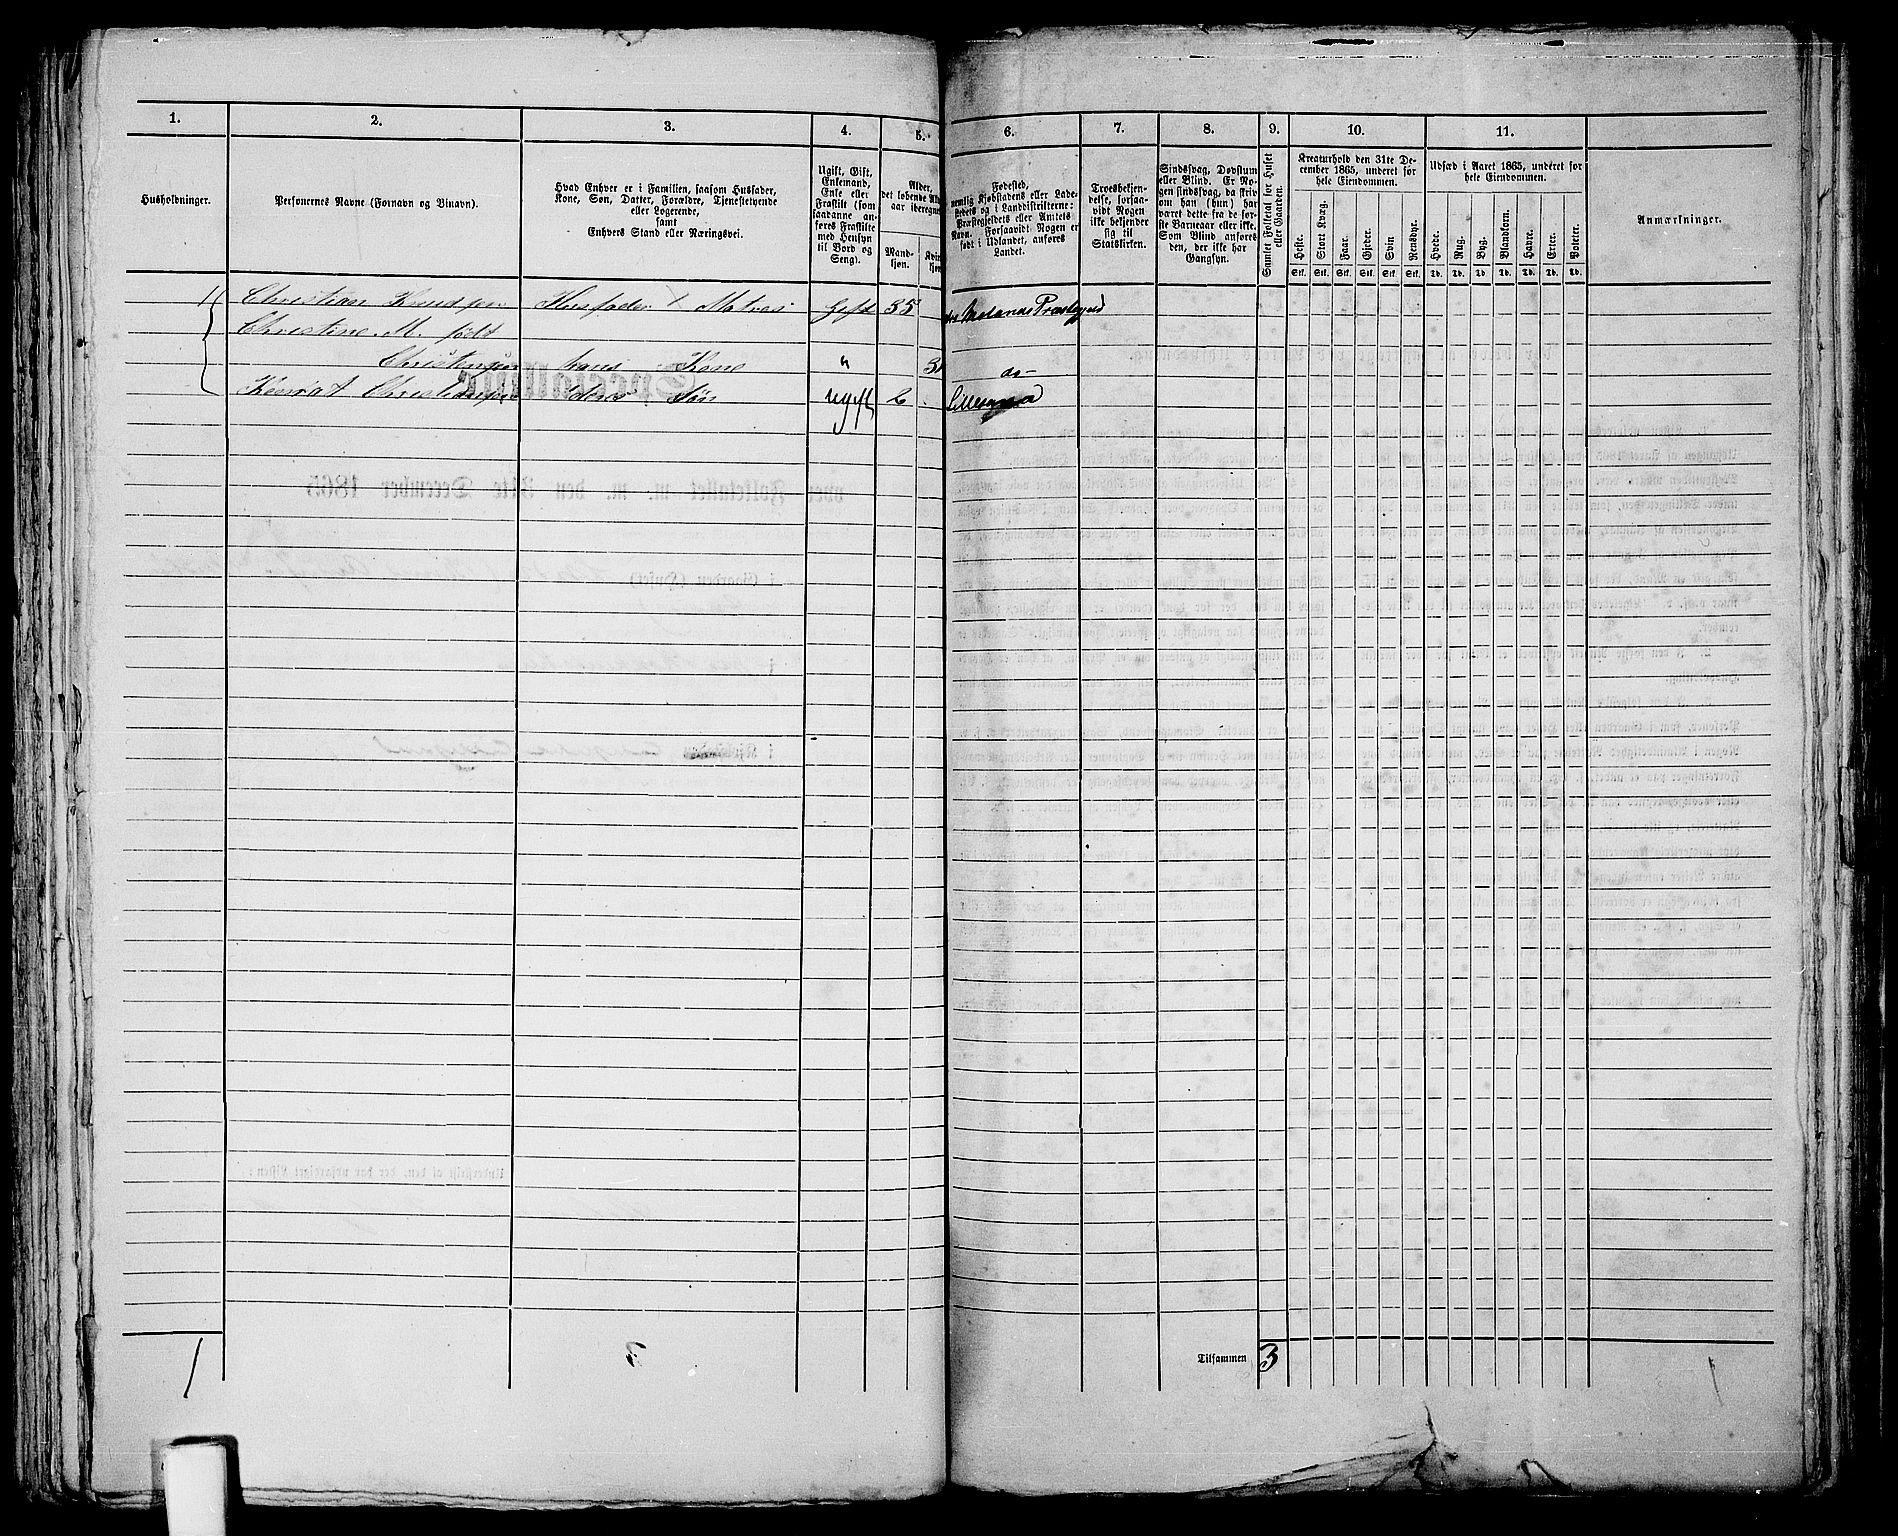 1. 2. 3. 4. 5. 6. 7. 8. 9. 10. 11.
Husholdninger.
Personernes Navne (Fornavn og Vinavn).
Hvad Enhver er i Familien, saasom Husfader,
Kone, Søn, Datter, Forældre, Tjenestetyende
eller Logerende,
samt
Enhvers Stand eller Næringsvei.
Ugift, Gift,
Enkemand,
Enke eller
Fraskilt (som
saadanne an-
føres Fraskilte
med Hensyn
til Bord og
Seng).
Alder,
det løbende Al
aar iberegne
Mand-
kjøn.
Kvin
kjøn
Fødested,
nemlig Kjøbstadens eller Lade-
stedets og i Landdistrikterne:
Præstegjeldets eller Amtets
Navn. Forsaavidt Nogen er
født i Udlandet, anføres
Landet.
Troesbekjen-
delse, forsaa-
vidt Nogen
ikke bekjender
sig til
Statskirken.
Sindssvag, Døvstum
eller Blind. Er No-
gen sindssvag, da skriv
om han (hun) har
været dette fra de før-
ste Barneaar eller ikke.
Som Blind anføres
den, der ikke har
Gangsyn.
Samlet Folketal for Huset
eller Gaarden.
Kreaturhold den 31te De-
cember 1865, underet for
hele Eiendommen.
Heste. Stort Kvæg. Faar. Gjeder. Svin Rensdyr.
Stk. Stk. Stk. Stk. Stk. Stk.
Udsæd i Aaret 1865, underet for
hele Eiendommen.
Hvede. Rug. Byg. Blandkorn. Havre. Erter. Poteter.
Td. Td. Td. Td. Td. Td. Td.
Anmærkninger.
1 Christian Knudsen Husfader Matros Gift 35 Molands Præstegjeld
Christine M. født
Christensen hans Kone " 3 do-
Christiansen deres Søn ugift 2 Lillesand
1 3 Tilsammen 3